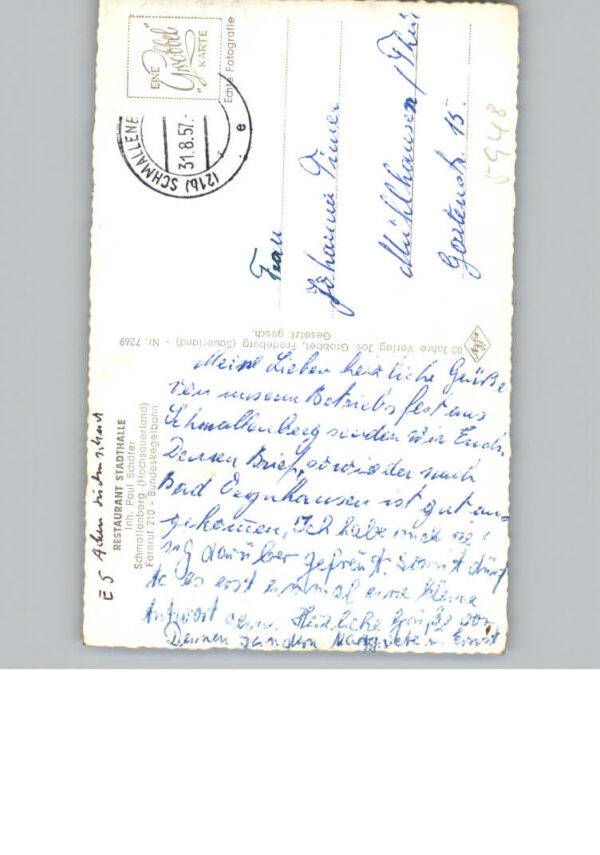 EINE
Grobbel
KARTE
Echte Fotografie
(21b) SCHMALLENB
31.8.57.
e
Frau
Johanna
Mühlhausen / Thür
Gartenstr. 15.
5948
80 Jahre Verlag Jos. Grobbel, Fredeburg (Sauerland) - Nr. 7269
Gesetzl. gesch.
Agfa
RESTAURANT STADTHALLE
Inh. Paul Schäfer
Schmallenberg (Hochsauerland)
Fernruf 210 - Bundeskegelbahn
E 5
Meine Lieben herzliche Grüße
von unserm Betriebsfest aus
Schmallenberg senden wir Euch.
Deinen Brief, sowie der nach
Bad Oeynhausen ist gut an-
gekommen, Ich habe mich
darüber gefreut. Somit dürf
te es erst einmal eine kleine
Antwort sein. Herzliche Grüße von
Ernst